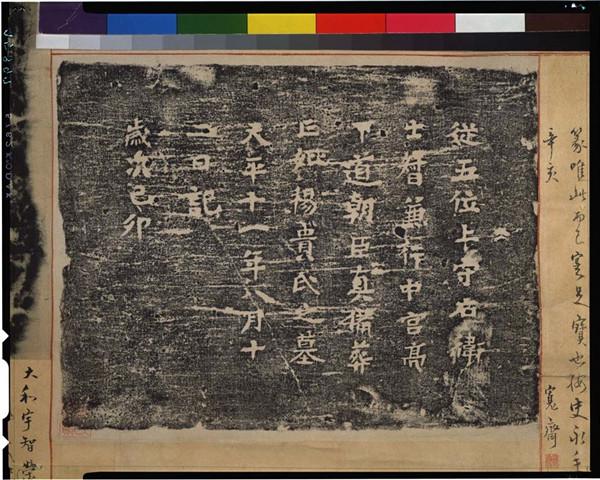 篆唯此而已 足寶也 史
辛亥 寬齋
從五位上守右衛
士督兼行中宮亮
下道朝臣真備葬
亡妣楊貴氏之墓
天平十一年八月十
二日記
歲次己卯
大和宇智榮